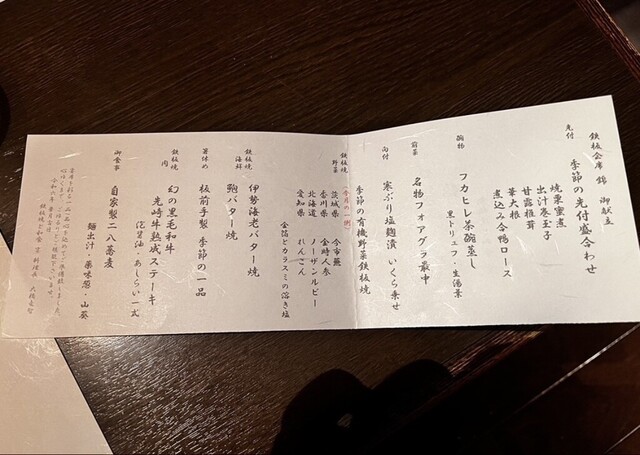 鉄板会席 錦 御献立
先付
季節の先付盛合わせ
焼栗蜜煮
出汁巻玉子
甘露椎茸
華大根
煮込み合鴨ロース
椀物
フカヒレ茶碗蒸し
黒トリュフ・生湯葉
前菜
名物フォアグラ最中
向付
寒ぶり塩麹漬 いくら乗せ
鉄板焼
野菜
季節の有機野菜鉄板焼
(今月の一例)
茨城県 今市蕪
香川県 金時人参
北海道 ノーザンルビー
愛知県 れんこん
金箔とカラスミの溶き塩
鉄板焼
海鮮
伊勢海老バター焼
鮑バター焼
箸休め
板前手製 季節の一品
鉄板焼
肉
幻の黒毛和牛
尾崎牛熟成ステーキ
御食事
自家製二八蕎麦
麺出汁・薬味葱・山葵